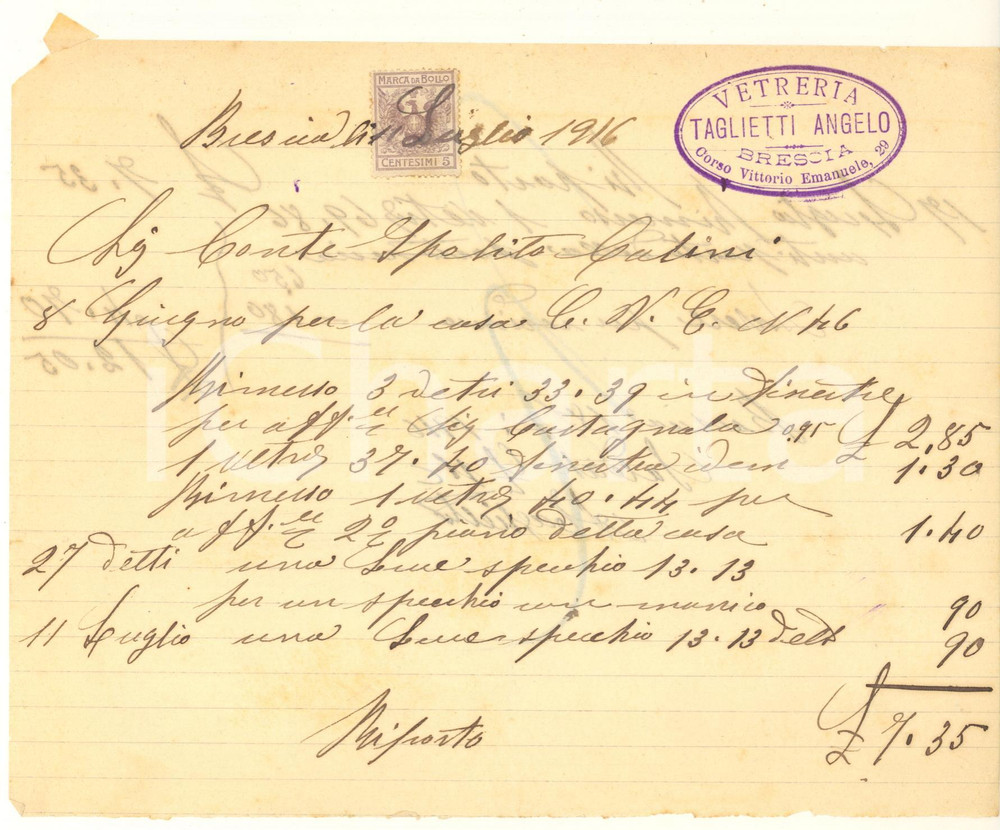 MARCA DA BOLLO
CENTESIMI 5
VETRERIA
TAGLIETTI ANGELO
BRESCIA
Corso Vittorio Emanuele, 29
Brescia li 11 Luglio 1916
Sig Conte Ipolito Calini
8 Giugno per la casa C. V. E. N 46
Rimesso 3 detri 33.39 in finestre
per aff. Sig Castagnola 0,95 £ 2.85
1 vetro 37.40 finestra idem 1.30
Rimesso 1 vetro 40.44 per
aff. 2o piano detta casa 1.40
27 detti una Luce specchio 13.13
per un specchio con manico 90
11 Luglio una Luce specchio 13.13 dett 90
Riporto £ 7.35
iCharta